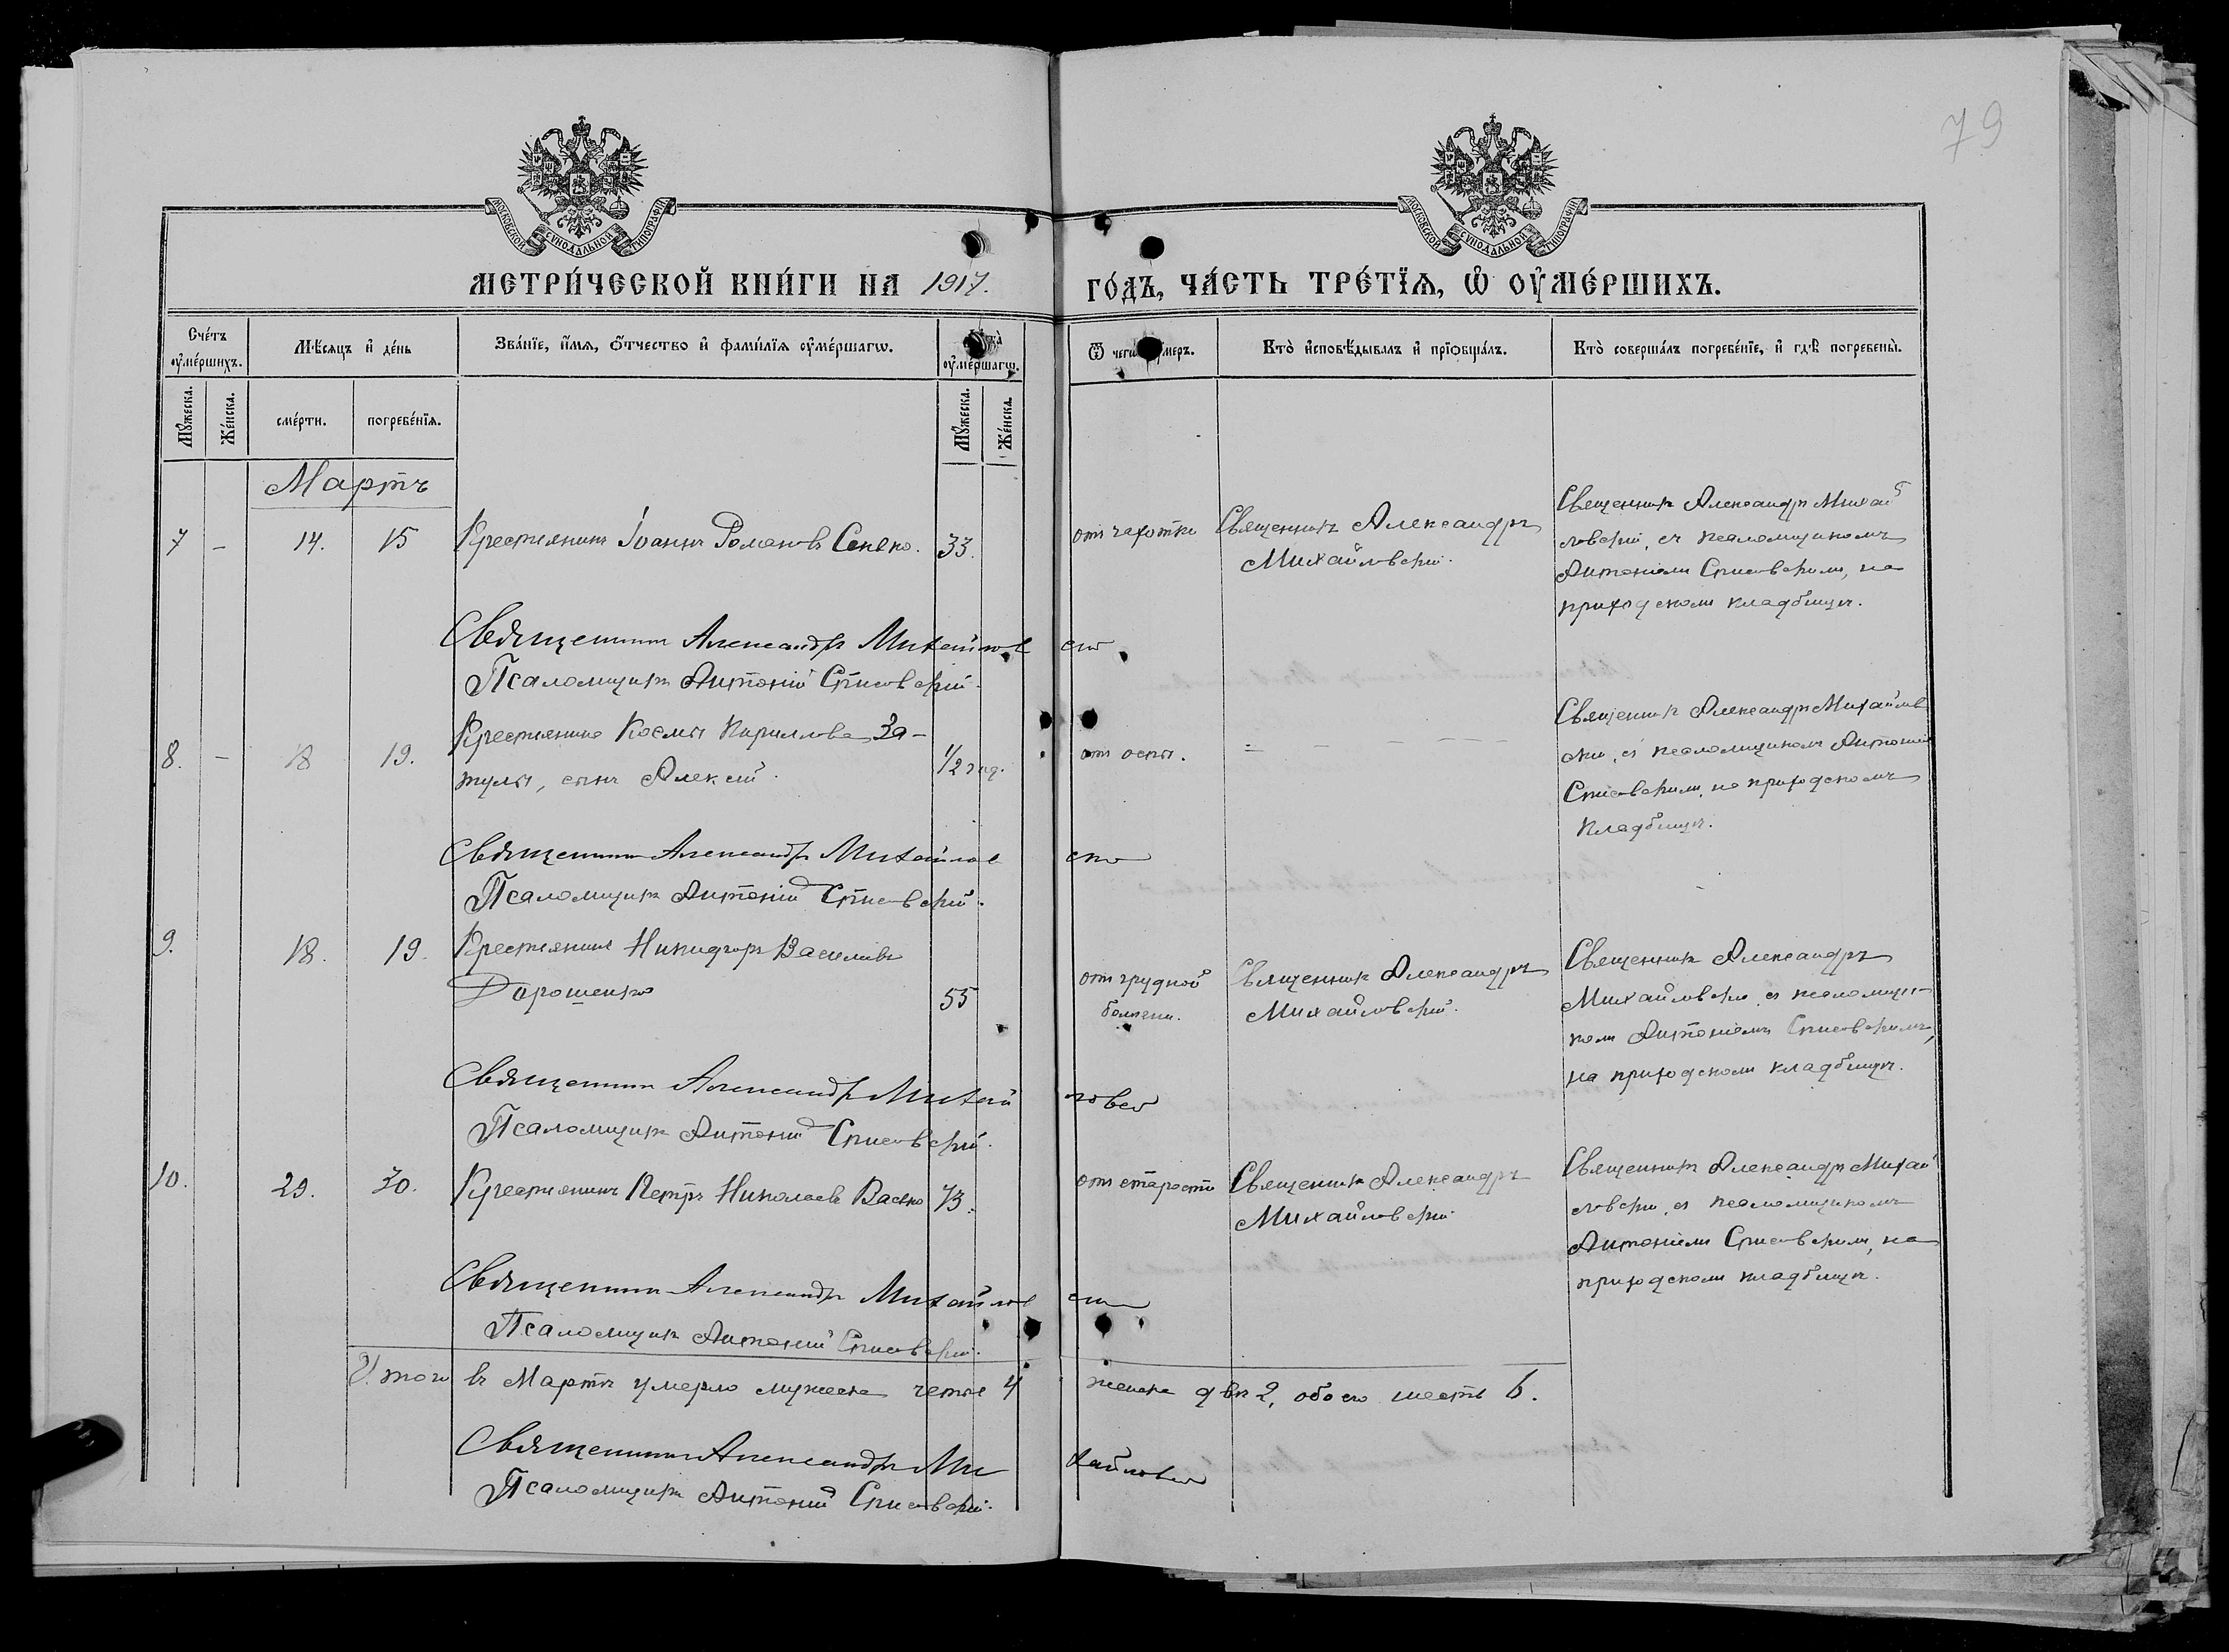 79
МОСКОВСКОЙ СУНОДАЛЬНОЙ ТИПОГРАФІИ
МОСКОВСКОЙ СУНОДАЛЬНОЙ ТИПОГРАФІИ
МЕТРИ́ЧЕСКОЙ КНИ́ГИ НА 1917. ГО́ДЪ, ЧА́СТЬ ТРЕ́ТЇѦ, Ѡ҆ ОУ҆МЕ́РШИХЪ.
Сче́тъ оу҆ме́ршихъ.
Мѣ́сяцъ и҆ де́нь
Зва́нїе, и҆́мѧ, ѻ҆́тчество и҆ фами́лїѧ оу҆ме́ршагѡ.
оу҆ме́ршагѡ.
Ѿ чегѡ̀
Кто̀ и҆сповѣ́дывалъ и҆ прїѡбща́лъ.
Кто̀ соверша́лъ погребе́нїе, и҆ гдѣ̀ погребены̀.
Мꙋ́жеска.
Же́нска.
сме́рти.
погребе́нїѧ.
Мꙋ́жеска.
Же́нска.
Мартъ
7 – 14. 15 Крестьянинъ Іоаннъ Романовъ Сенько. 33.
отъ чахотки
Священникъ Александръ
Михайловскій.
Священникъ Александръ Михай
ловскій, съ псаломщикомъ
Антоніемъ Списовскимъ, на
приходскомъ кладбищѣ.
Священникъ Александръ Михайловскій
Псаломщикъ Антоній Списовскій.
8. – 18 19. Крестьянина Космы Кириллова За-
тулы, сынъ Алексій. 1/2 год.
отъ оспы. – – – –
Священникъ Александръ Михайлов
скій, съ псаломщикомъ Антоніемъ
Списовскимъ, на приходскомъ
кладбищѣ.
Священникъ Александръ Михайловскій
Псаломщикъ Антоній Списовскій.
9. 18. 19. Крестьянинъ Никифоръ Васильевъ
Дорошенко 55
отъ грудной
болѣзни.
Священникъ Александръ
Михайловскій.
Священникъ Александръ
Михайловскій, съ псаломщи-
комъ Антоніемъ Списовскимъ,
на приходскомъ кладбищѣ.
Священникъ Александръ Михайловскій
Псаломщикъ Антоній Списовскій.
10. 29. 30. Крестьянинъ Петръ Николаевъ Васько 73.
отъ старости
Священникъ Александръ
Михайловскій
Священникъ Александръ Михай
ловскій, съ псаломщикомъ
Антоніемъ Списовскимъ, на
приходскомъ кладбищѣ.
Священникъ Александръ Михайловскій
Псаломщикъ Антоній Списовскій.
Итого въ Мартѣ умерло мужеска четыре 4 женска двѣ 2, обоего шесть 6.
Священникъ Александръ Михайловскій
Псаломщикъ Антоній Списовскій.